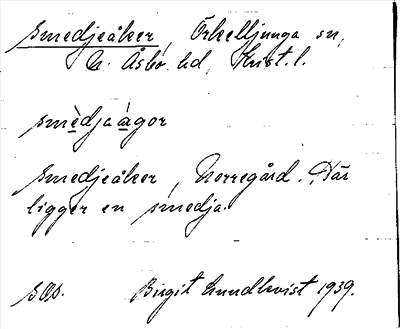 Smedjeåker, Örkelljunga sn,
N. Åsbo hd, Krist. l.
smèdjaàgor
Smedjeåker, Norregård. Där
ligger en smedja.
Birgit Lundkvist 1939.